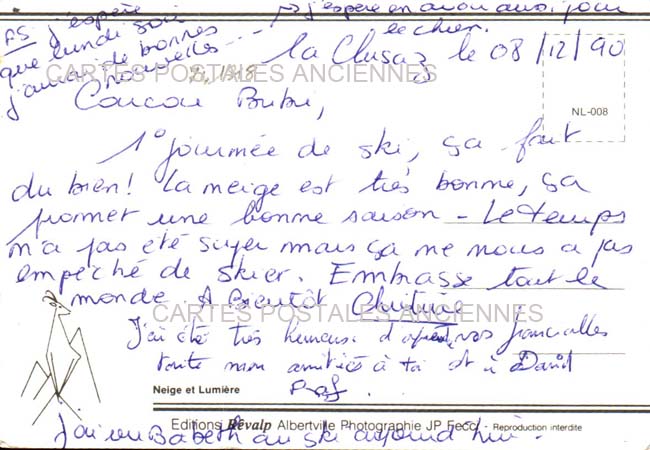 PS j'espère
que lundi soir
j'aurai de bonnes
nouvelles...
→ j'espère en avoir aussi pour
le chien.
La Clusaz le 08/12/90
CARTES POSTALES ANCIENNES
Coucou Bubu,
NL-008
1° journée de ski, ça fait
du bien! La neige est très bonne, ça
promet une bonne saison - Le temps
n'a pas été super mais ça ne nous a pas
empêché de skier. Embrasse tout le
monde. A bientôt Christine
CARTES POSTALES ANCIENNES
J'ai été très heureux d' vos fiancailles
toute mon amitiés à toi et à David
Raf
Neige et Lumière
Editions Révalp Albertville Photographie JP Fecci - Reproduction interdite
J'ai vu Babeth au ski aujourd'hui.